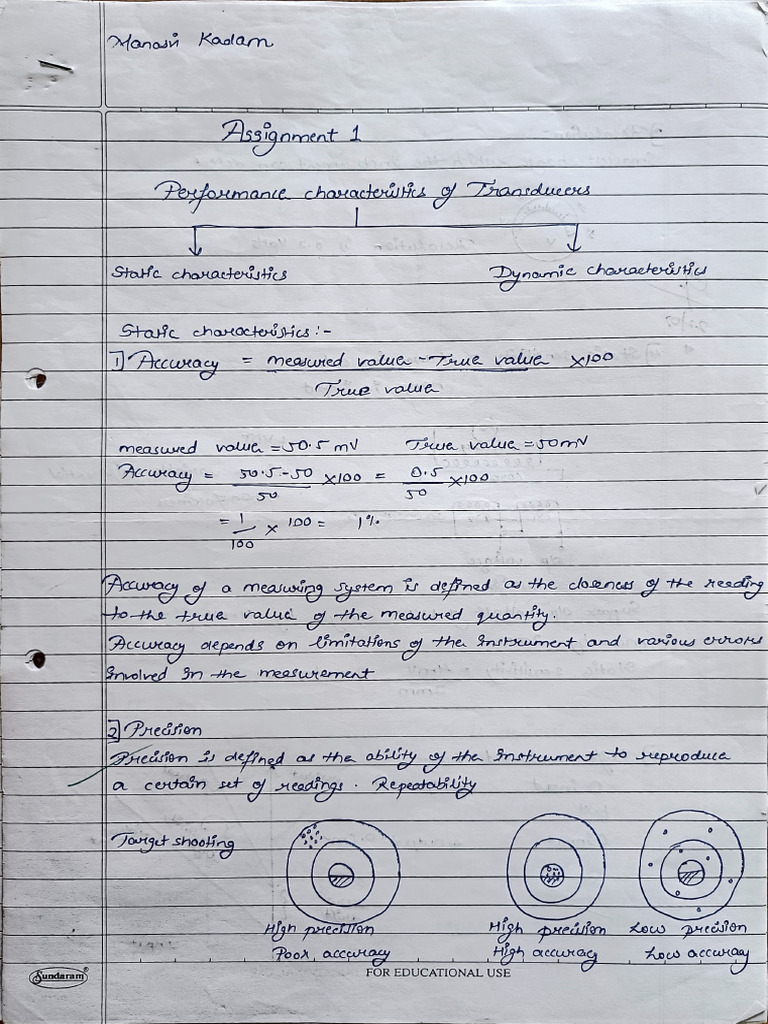 Manasri Kadam
Assignment 1
Performance characteristics of Transducers
Static characteristics
Dynamic characteristics
Static characteristics:-
1] Accuracy = measured value - True value ×100
True value
measured value = 50.5 mV True value = 50mV
Accuracy = 50.5-50 ×100 = 0.5 ×100
50 50
= 1 × 100 = 1%
100
Accuracy of a measuring system is defined as the closeness of the reading
to the true value of the measured quantity.
Accuracy depends on limitations of the instrument and various errors
involved in the measurement
2] Precision
Precision is defined as the ability of the instrument to reproduce
a certain set of readings. Repeatability
Target shooting
High precision High precision Low precision
Poor accuracy High accuracy Low accuracy
Sundaram®
FOR EDUCATIONAL USE